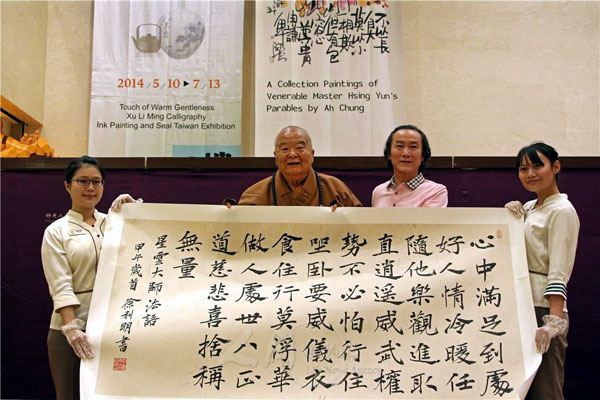 2014/5/10▶7/13
Touch of Warm Gentleness
Xu Li Ming Calligraphy
Ink Painting and Seal Taiwan Exhibition
A Collection Paintings of
Venerable Master Hsing Yun's
Parables by Ah Chung
心中滿足到處
好人情冷暖任
隨他樂觀進取
直逍遥威武權
勢不必怕行住
坐卧要威儀衣
食住行莫浮華
做人處世八正
道慈悲喜捨稱
無量
星雲大師法語
甲午歲首 徐利明書